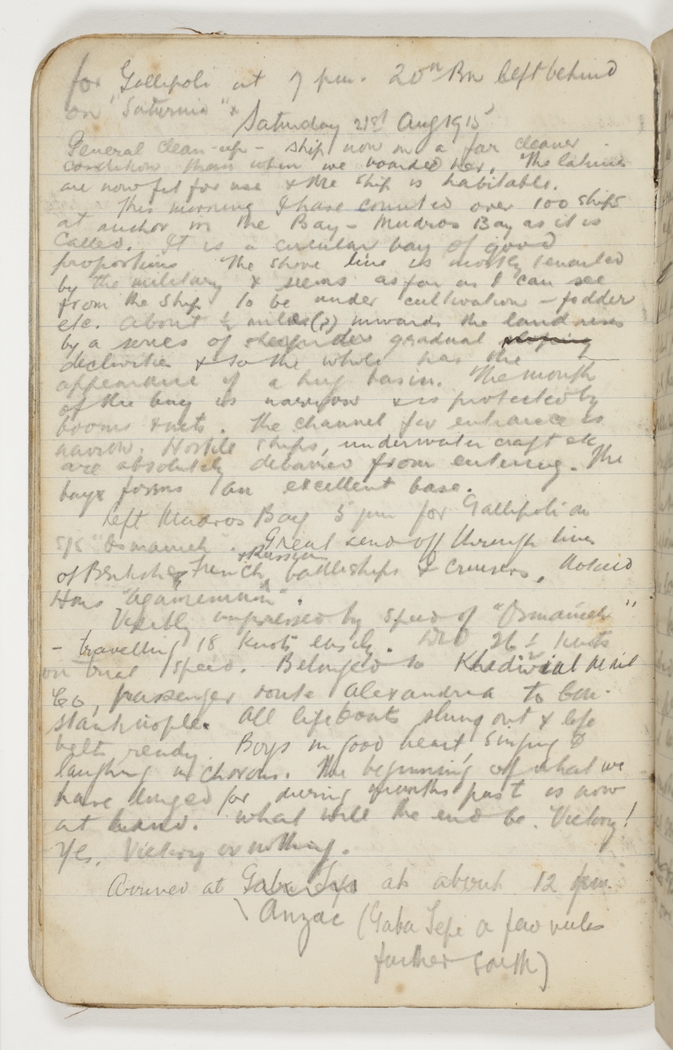 for Gallipoli at 7 pm. 20th Bn left behind
on "Saturnia".
Saturday 21st Aug 1915
General clean-up - ship now in a far cleaner
condition than when we boarded her. The latrines
are now fit for use & the ship is habitable.
This morning I have counted over 100 ships
at anchor in the Bay - Mudros Bay as it is
called. It is a circular bay of good
proportions. The shore line is mostly tenanted
by the military & seems as far as I can see
from the ship to be under cultivation - fodder
etc. About ½ mile(?) inwards the land rises
by a series of gradual sloping
declivities & so the whole has the
appearance of a huge basin. The mouth
of the bay is narrow & is protected by
booms & nets. The channel for entrance is
narrow. Hostile ships, underwater craft etc
are absolutely debarred from entering. The
bay forms an excellent base.
Left Mudros Bay 5 pm for Gallipoli on
S/S "Osmanieh". Great send off through lines
& Russian
of British, French, battleships & cruisers. Noticed
HMS "Agamemnon".
Visibly impressed by speed of "Osmanieh"
- travelling 18 knots easily. Did 26½ knots
on trial speed. Belonged to Khedivial Mail
Co, passenger route Alexandria to Con-
stantinople. All lifeboats slung out & life
belts ready. Boys in good heart singing &
laughing in chorus. The beginning of what we
have longed for during months past is now
at hand. What will the end be. Victory!
Yes. Victory or nothing.
Arrived at Gaba Tepe at about 12 pm.
Anzac (Gaba Tepe a few miles
further south)